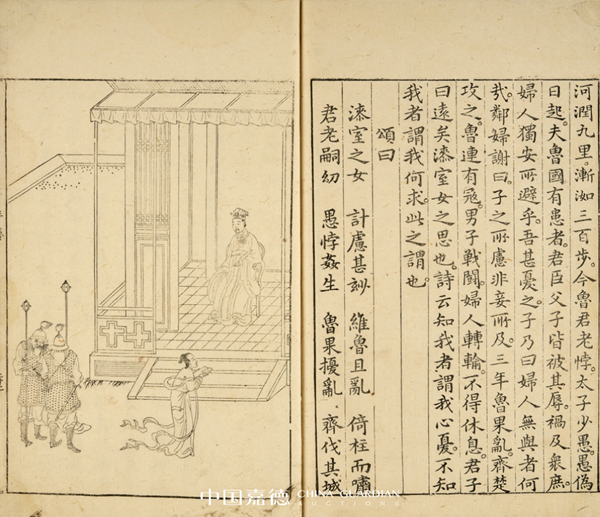 河潤九里。漸洳三百步。今魯君老悖。太子少愚。愚偽
日起。夫魯國有患者。君臣父子皆被其辱。禍及衆庶
婦人獨安所避乎。吾甚憂之。子乃曰婦人無與者何
哉。鄰婦謝曰。子之所慮非妾所及。三年魯果亂。齊楚
攻之。魯連有寇。男子戰鬭。婦人轉輸。不得休息。君子
曰遠矣漆室女之思也。詩云知我者謂我心憂。不知
我者謂我何求。此之謂也。
頌曰
漆室之女 計慮甚妙 維魯且亂 倚柱而嘯
君老嗣幼 愚悖姦生 魯果擾亂 齊伐其城
中国嘉德 CHINA GUARDIAN
AUCTIONS